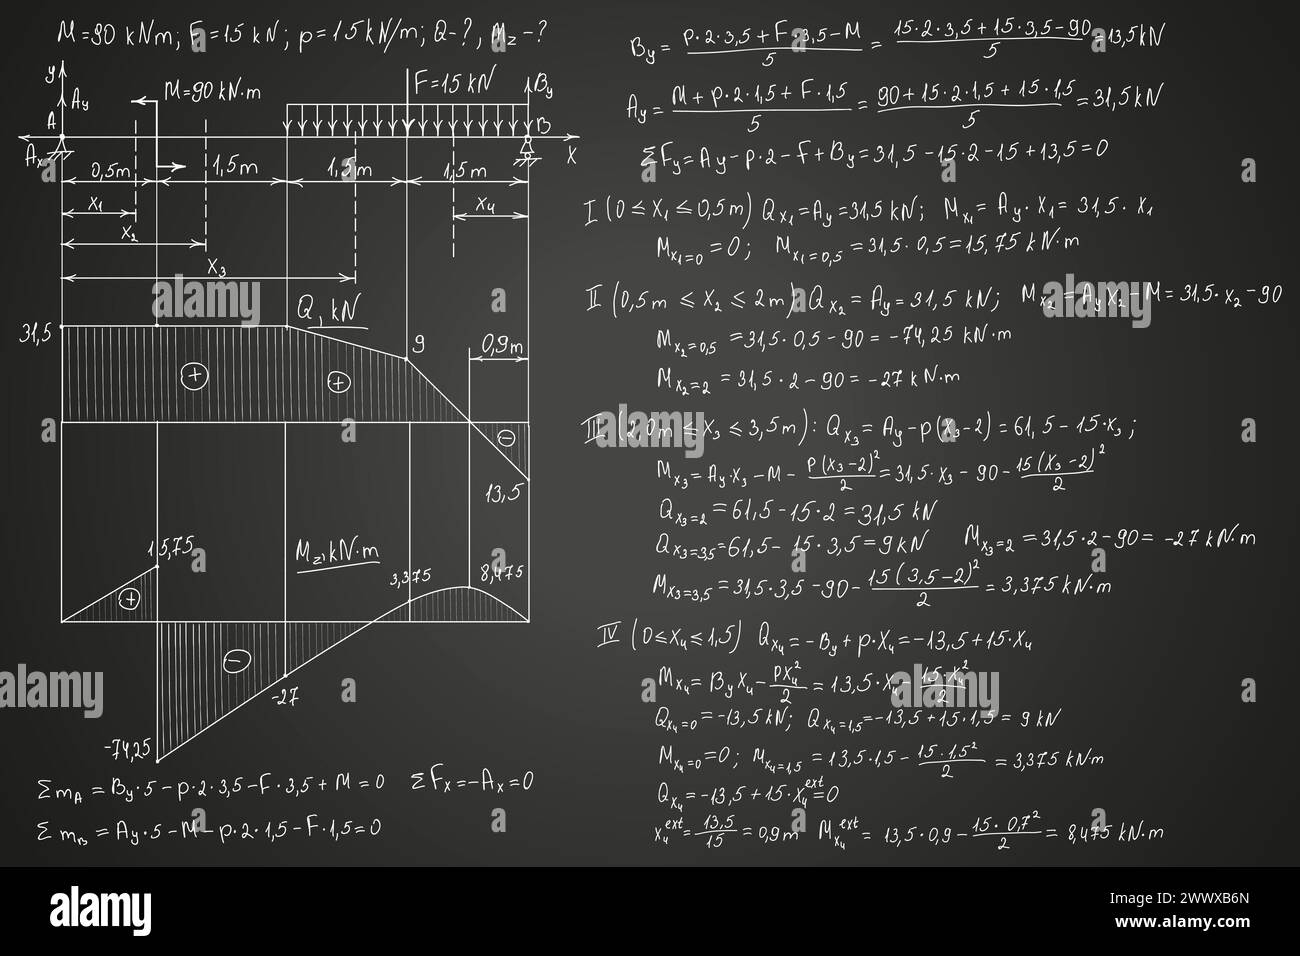 M=90 kNm; F=15 kN; p=15kN/m; Q-?, Mz-?
y
Ay
M=90 kN·m
F=15 kN
By
A
B
Ax
X
0,5m
1,5m
1,5m
1,5m
x₁
x₄
x₂
x₃
Q, kN
31,5
9
0,9m
+
+
−
13,5
15,75
Mz, kN·m
3,375
8,475
+
−
-27
-74,25
ΣmA = By·5 − p·2·3,5 − F·3,5 + M = 0
ΣFx = −Ax = 0
ΣmB = Ay·5 − M − p·2·1,5 − F·1,5 = 0
By = (p·2·3,5 + F·3,5 − M)/5 = (15·2·3,5 + 15·3,5 − 90)/5 = 13,5 kN
Ay = (M + p·2·1,5 + F·1,5)/5 = (90 + 15·2·1,5 + 15·1,5)/5 = 31,5 kN
ΣFy = Ay − p·2 − F + By = 31,5 − 15·2 − 15 + 13,5 = 0
I (0 ≤ x₁ ≤ 0,5m) Qx₁ = Ay = 31,5 kN; Mx₁ = Ay·x₁ = 31,5·x₁
Mx₁=0 = 0; Mx₁=0,5 = 31,5·0,5 = 15,75 kN·m
II (0,5m ≤ x₂ ≤ 2m) Qx₂ = Ay = 31,5 kN; Mx₂ = Ay x₂ − M = 31,5·x₂ − 90
Mx₂=0,5 = 31,5·0,5 − 90 = −74,25 kN·m
Mx₂=2 = 31,5·2 − 90 = −27 kN·m
III (2,0m ≤ x₃ ≤ 3,5m): Qx₃ = Ay − p(x₃−2) = 61,5 − 15·x₃;
Mx₃ = Ay·x₃ − M − p(x₃−2)²/2 = 31,5·x₃ − 90 − 15(x₃−2)²/2
Qx₃=2 = 61,5 − 15·2 = 31,5 kN
Qx₃=3,5 = 61,5 − 15·3,5 = 9 kN
Mx₃=2 = 31,5·2 − 90 = −27 kN·m
Mx₃=3,5 = 31,5·3,5 − 90 − 15(3,5−2)²/2 = 3,375 kN·m
IV (0 ≤ x₄ ≤ 1,5) Qx₄ = −By + p·x₄ = −13,5 + 15·x₄
Mx₄ = By x₄ − px₄²/2 = 13,5·x₄ − 15·x₄²/2
Qx₄=0 = −13,5 kN; Qx₄=1,5 = −13,5 + 15·1,5 = 9 kN
Mx₄=0 = 0; Mx₄=1,5 = 13,5·1,5 − 15·1,5²/2 = 3,375 kN·m
Qx₄ = −13,5 + 15·x₄ᵉˣᵗ = 0
x₄ᵉˣᵗ = 13,5/15 = 0,9m Mx₄ᵉˣᵗ = 13,5·0,9 − 15·0,7²/2 = 8,475 kN·m
alamy
alamy
Image ID: 2WWXB6N
www.alamy.com